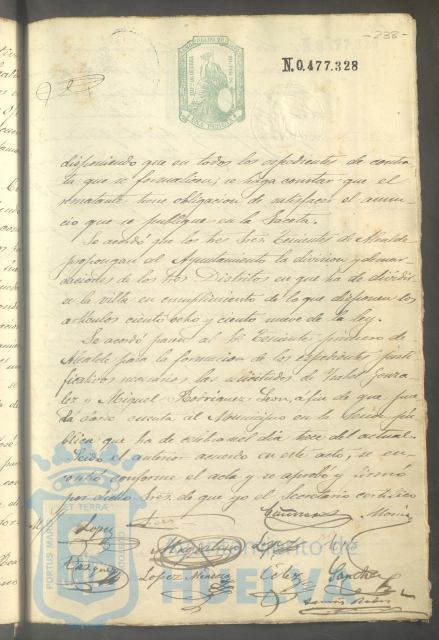 -238-
N.0.477.328
disponiendo que en todos los expedientes de contra
ta que se formalicen, se haga constar que el
rematante tiene obligacion de satisfacer el anun
cio que se publique en la Gaceta.
Se acordó que los tres Sres. Tenientes de Alcalde
propongan al Ayuntamiento la division y demar
caciones de los tres Distritos en que ha de dividir
se la villa en cumplimiento de lo que disponen los
artículos ciento ocho y ciento nueve de la ley.
Se acordó pasar al Sr. Teniente primero de
Alcalde para la formacion de los expedientes justi
ficativos necesarios las solicitudes de Gonza
lez y Miguel Rodriguez Leon, a fin de que pue
da darse cuenta al Municipio en la Sesion pú
blica que ha de celebrar el dia doce del actual.
Leida el anterior acuerdo en este acto, se en
contró conforme el acta y se aprobó y firmó
por dichos Sres. de que yo el Secretario certifico
Lopez
Lopez
Vazquez
Lopez
Sanchez
PORTUS MARIS ET TERRAE CUSTODIA
Ayuntamiento de
HUELVA